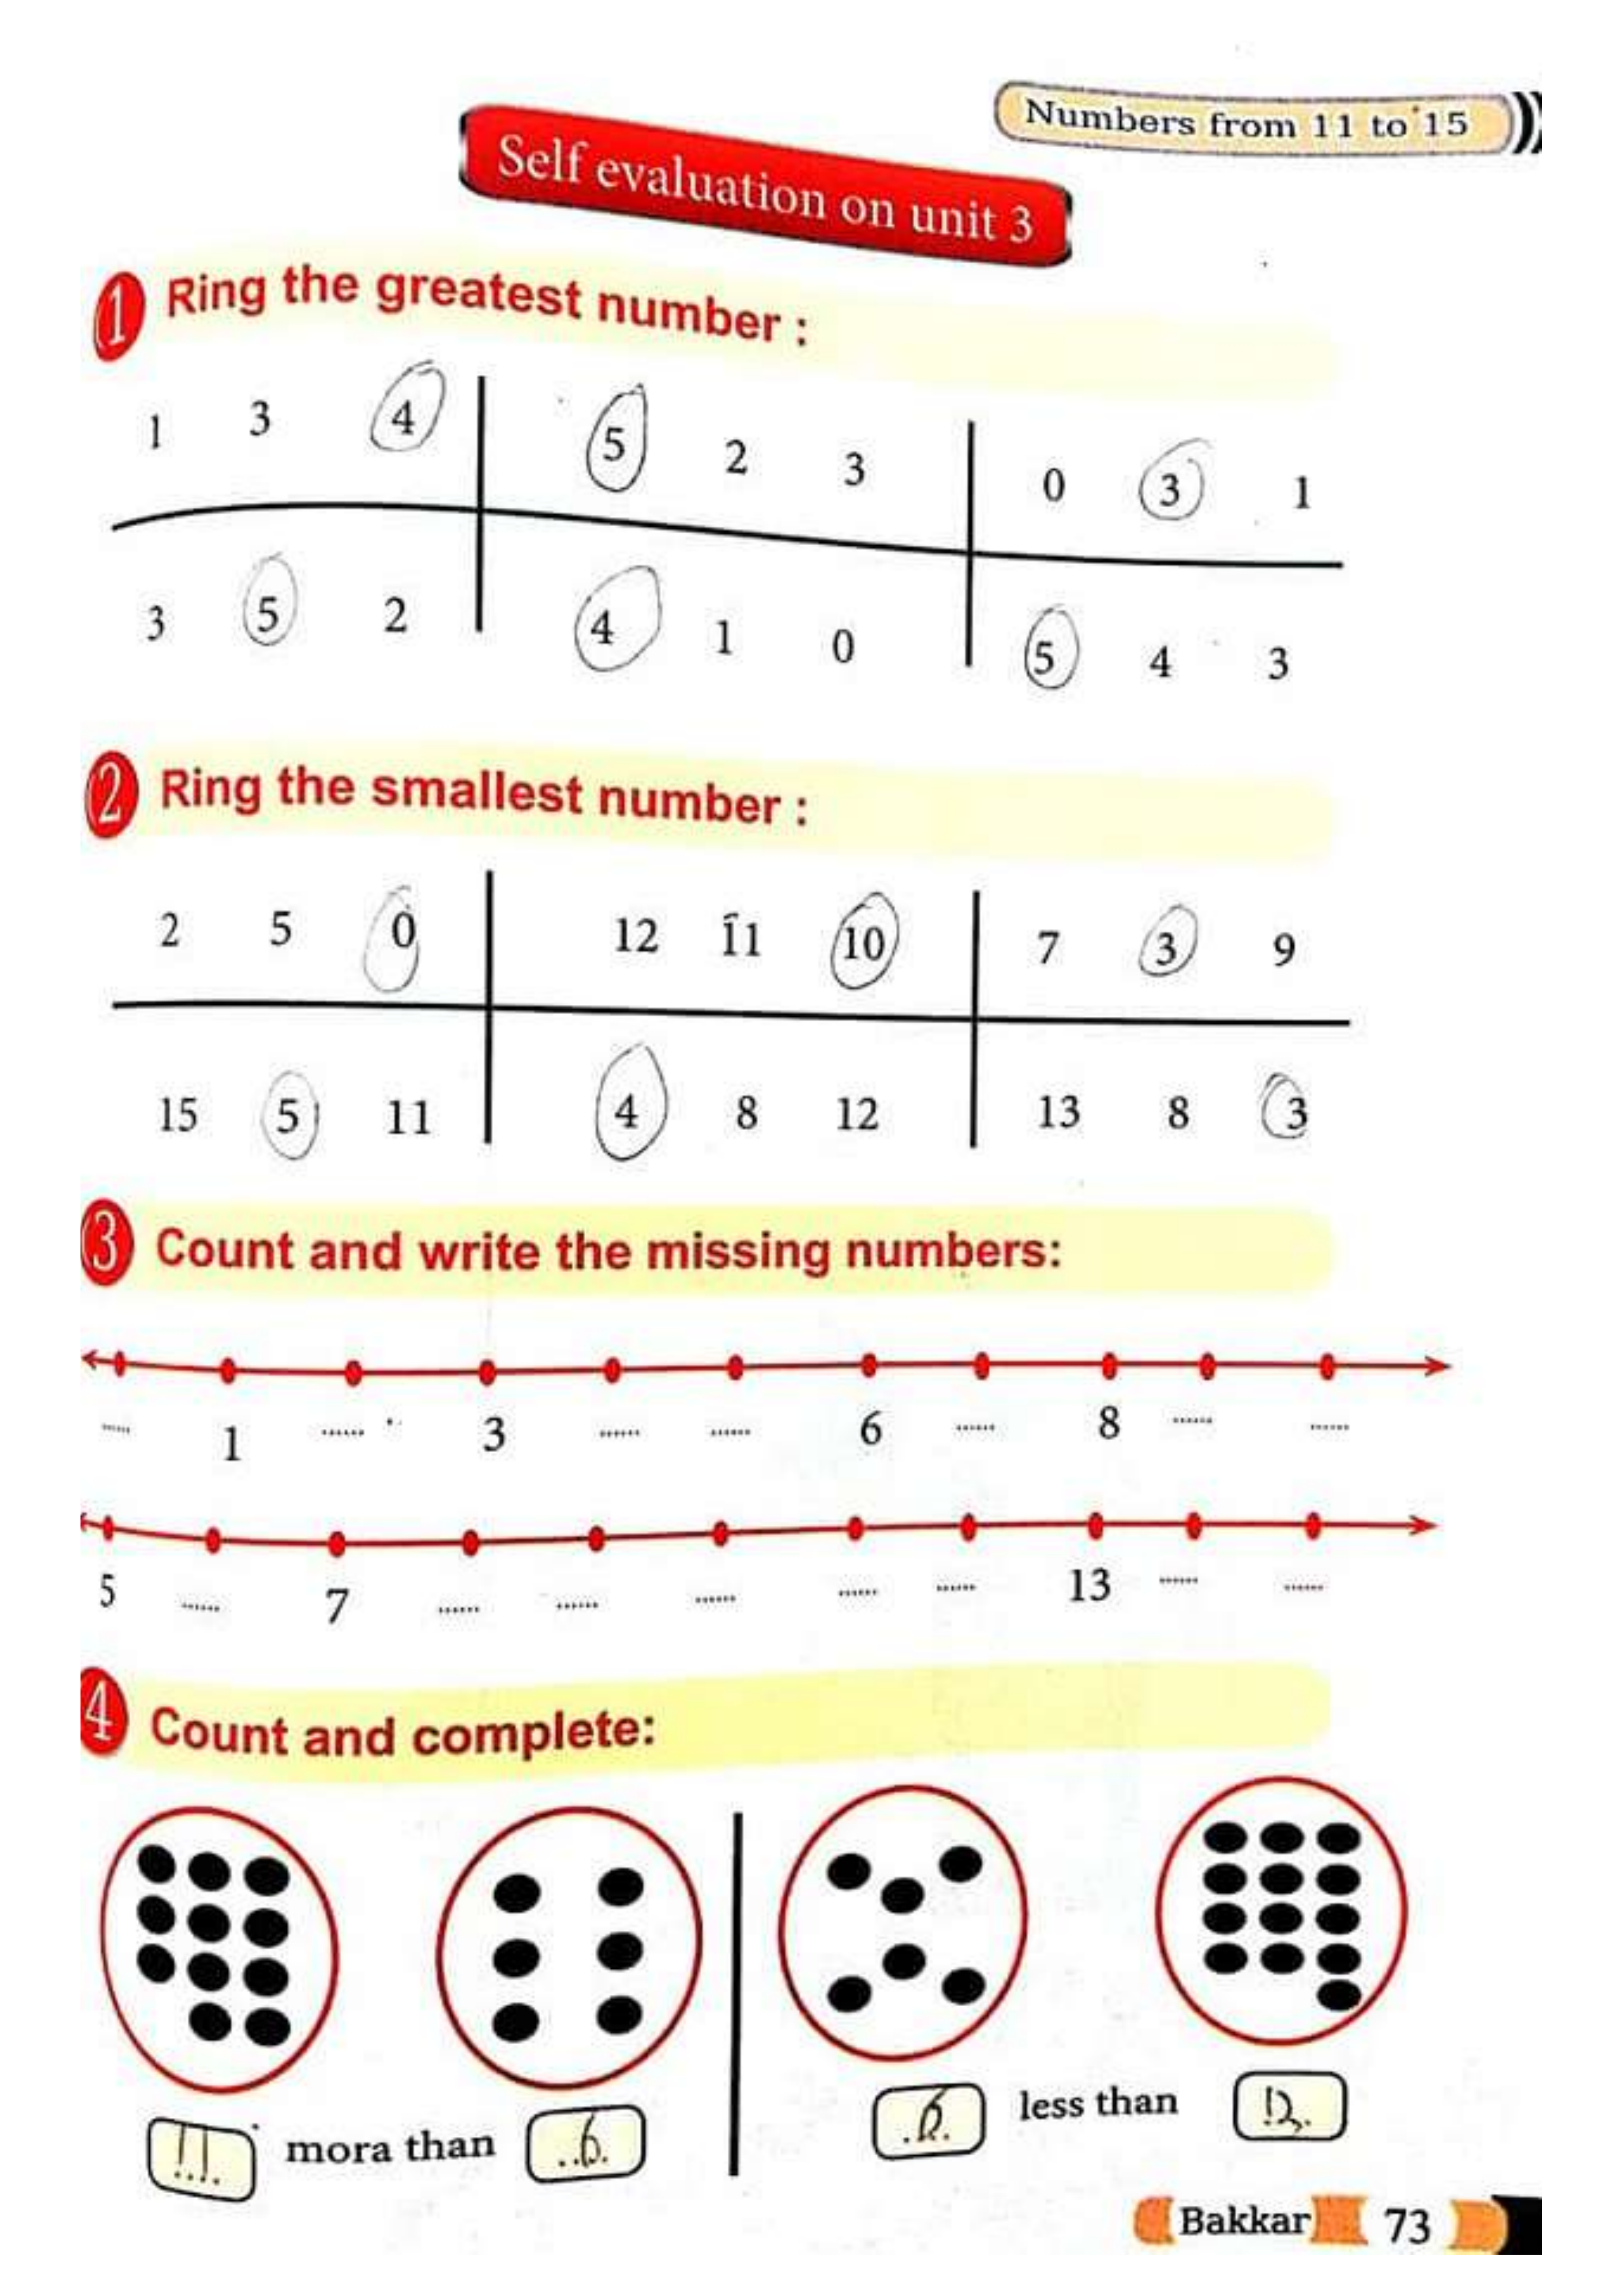 Numbers from 11 to 15
Self evaluation on unit 3
1 Ring the greatest number :
1 3 4 5 2 3 0 3 1
3 5 2 4 1 0 5 4 3
2 Ring the smallest number :
2 5 0 12 11 10 7 3 9
15 5 11 4 8 12 13 8 3
3 Count and write the missing numbers:
...... 1 ...... 3 ...... ...... 6 ...... 8 ...... ......
5 ...... 7 ...... ...... ...... ...... ...... 13 ...... ......
4 Count and complete:
11 mora than 6 6 less than
Bakkar 73